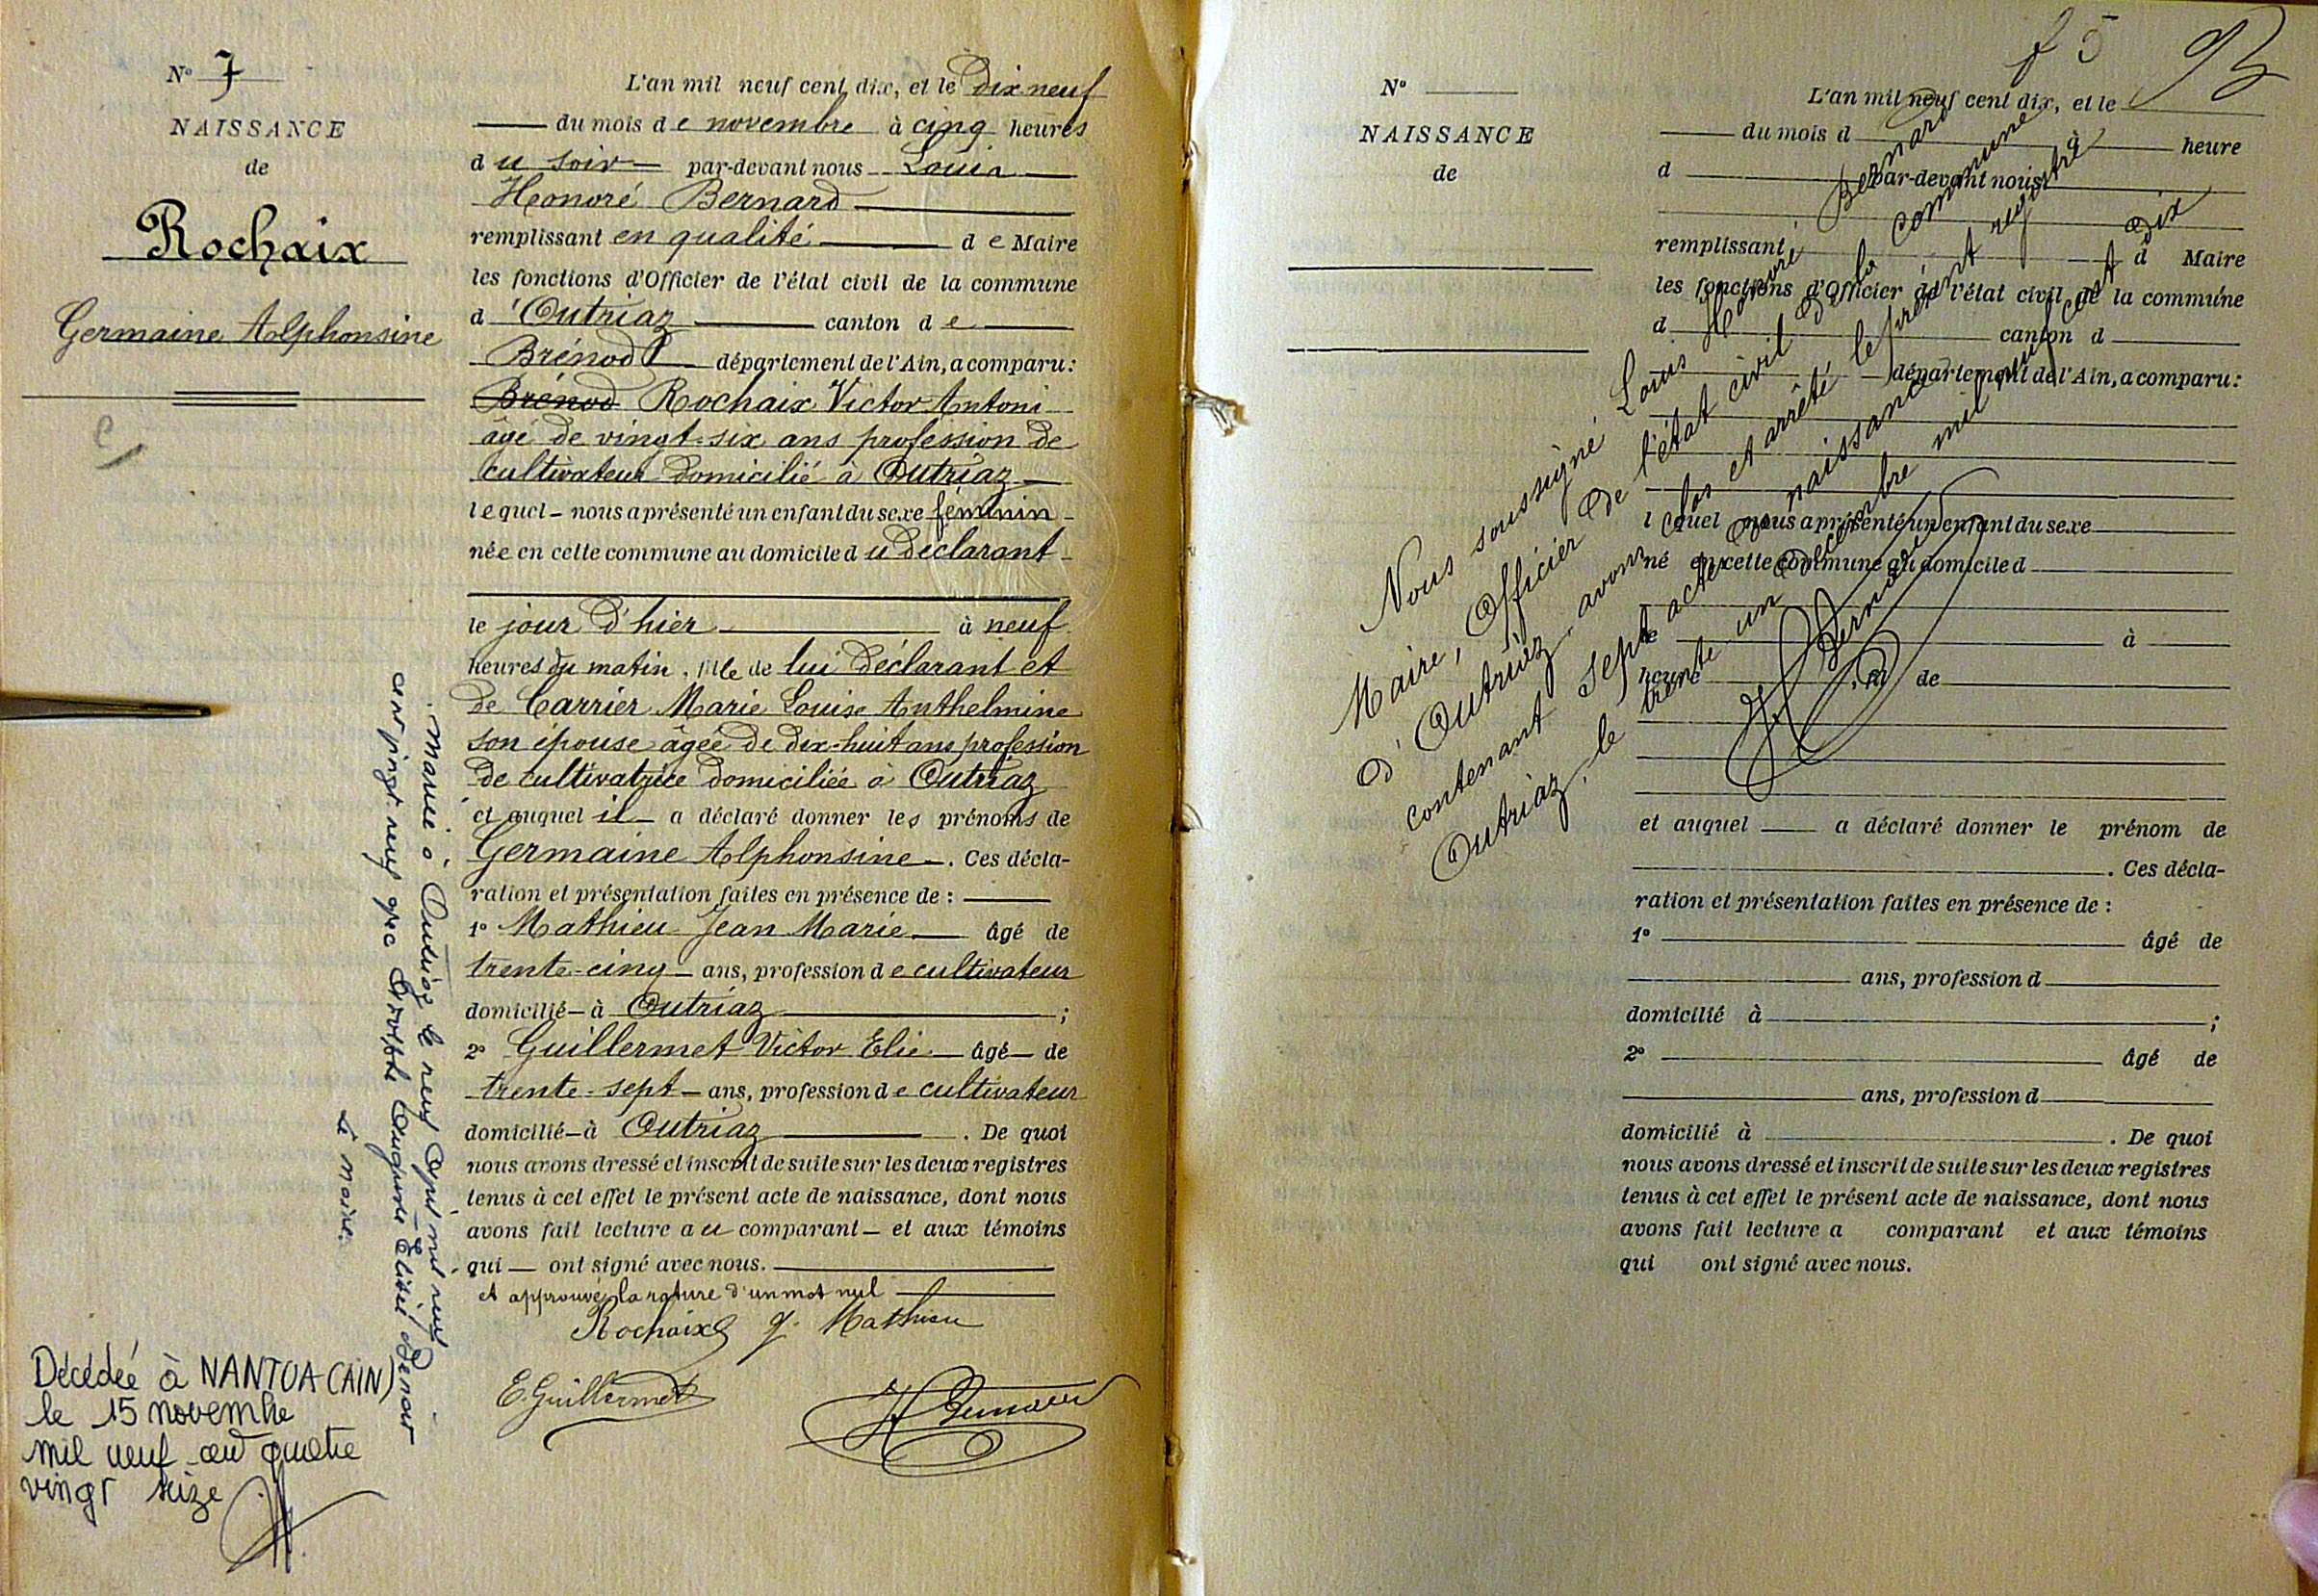 N° 7
NAISSANCE
de
Rochaix
Germaine Alphonsine
L'an mil neuf cent dix, et le dix neuf
du mois de novembre à cinq heures
du soir par-devant nous Louis
Honoré Bernard
remplissant en qualité de Maire
les fonctions d'Officier de l'état civil de la commune
d'Outriaz canton de
Brénod département de l'Ain, a comparu:
Brénod Rochaix Victor Antoni
âgé de vingt-six ans profession de
cultivateur domicilié à Outriaz
lequel nous a présenté un enfant du sexe féminin
née en cette commune au domicile du déclarant
le jour d'hier à neuf
heures du matin, fille de lui déclarant et
de Carrier Marie Louise Anthelmine
son épouse âgée de dix-huit ans profession
de cultivatrice domiciliée à Outriaz
et auquel il a déclaré donner les prénoms de
Germaine Alphonsine. Ces décla-
ration et présentation faites en présence de :
1° Mathieu Jean Marie âgé de
trente-cinq ans, profession de cultivateur
domicilié à Outriaz ;
2° Guillermet Victor Elie âgé de
trente-sept ans, profession de cultivateur
domicilié à Outriaz. De quoi
nous avons dressé et inscrit de suite sur les deux registres
tenus à cet effet le présent acte de naissance, dont nous
avons fait lecture au comparant et aux témoins
qui ont signé avec nous.
et approuvé la rature d'un mot nul
Rochaix J. Mathieu
E. Guillermet H Bernard
Mariée à Outriaz le neuf avril mil neuf
cent vingt-neuf avec Eugène Elisée
Le maire.
Décédée à NANTUA (AIN)
le 15 novembre
mil neuf cent quatre
vingt seize
f 5
N°
NAISSANCE
de
L'an mil neuf cent dix, et le
du mois d à heure
d par-devant nous
remplissant d Maire
les fonctions d'Officier de l'état civil de la commune
d canton d
département de l'Ain, a comparu:
l quel nous a présenté un enfant du sexe
né en cette commune au domicile d
le à
heure , fil de
et auquel a déclaré donner le prénom de
. Ces décla-
ration et présentation faites en présence de :
1° âgé de
ans, profession d
domicilié à ;
2° âgé de
ans, profession d
domicilié à . De quoi
nous avons dressé et inscrit de suite sur les deux registres
tenus à cet effet le présent acte de naissance, dont nous
avons fait lecture a comparant et aux témoins
qui ont signé avec nous.
Nous soussigné Louis Honoré Bernard
Maire, Officier de l'état civil de la commune
d'Outriaz, avons clos et arrêté le présent registre
contenant sept actes de naissance
Outriaz, le trente un décembre mil neuf cent dix
H Bernard